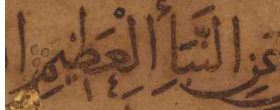 عَنِ النَّبَأِ الْعَظِيمِ